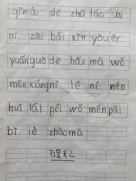 qīn ài de zhū lǎo shī
nǐ zài bǎi xīn yòu ér
yuánguò de hǎo ma wǒ
men xiǎng nǐ le nǐ néng
huí lái péi wǒ men pāi
bì yè zhào ma